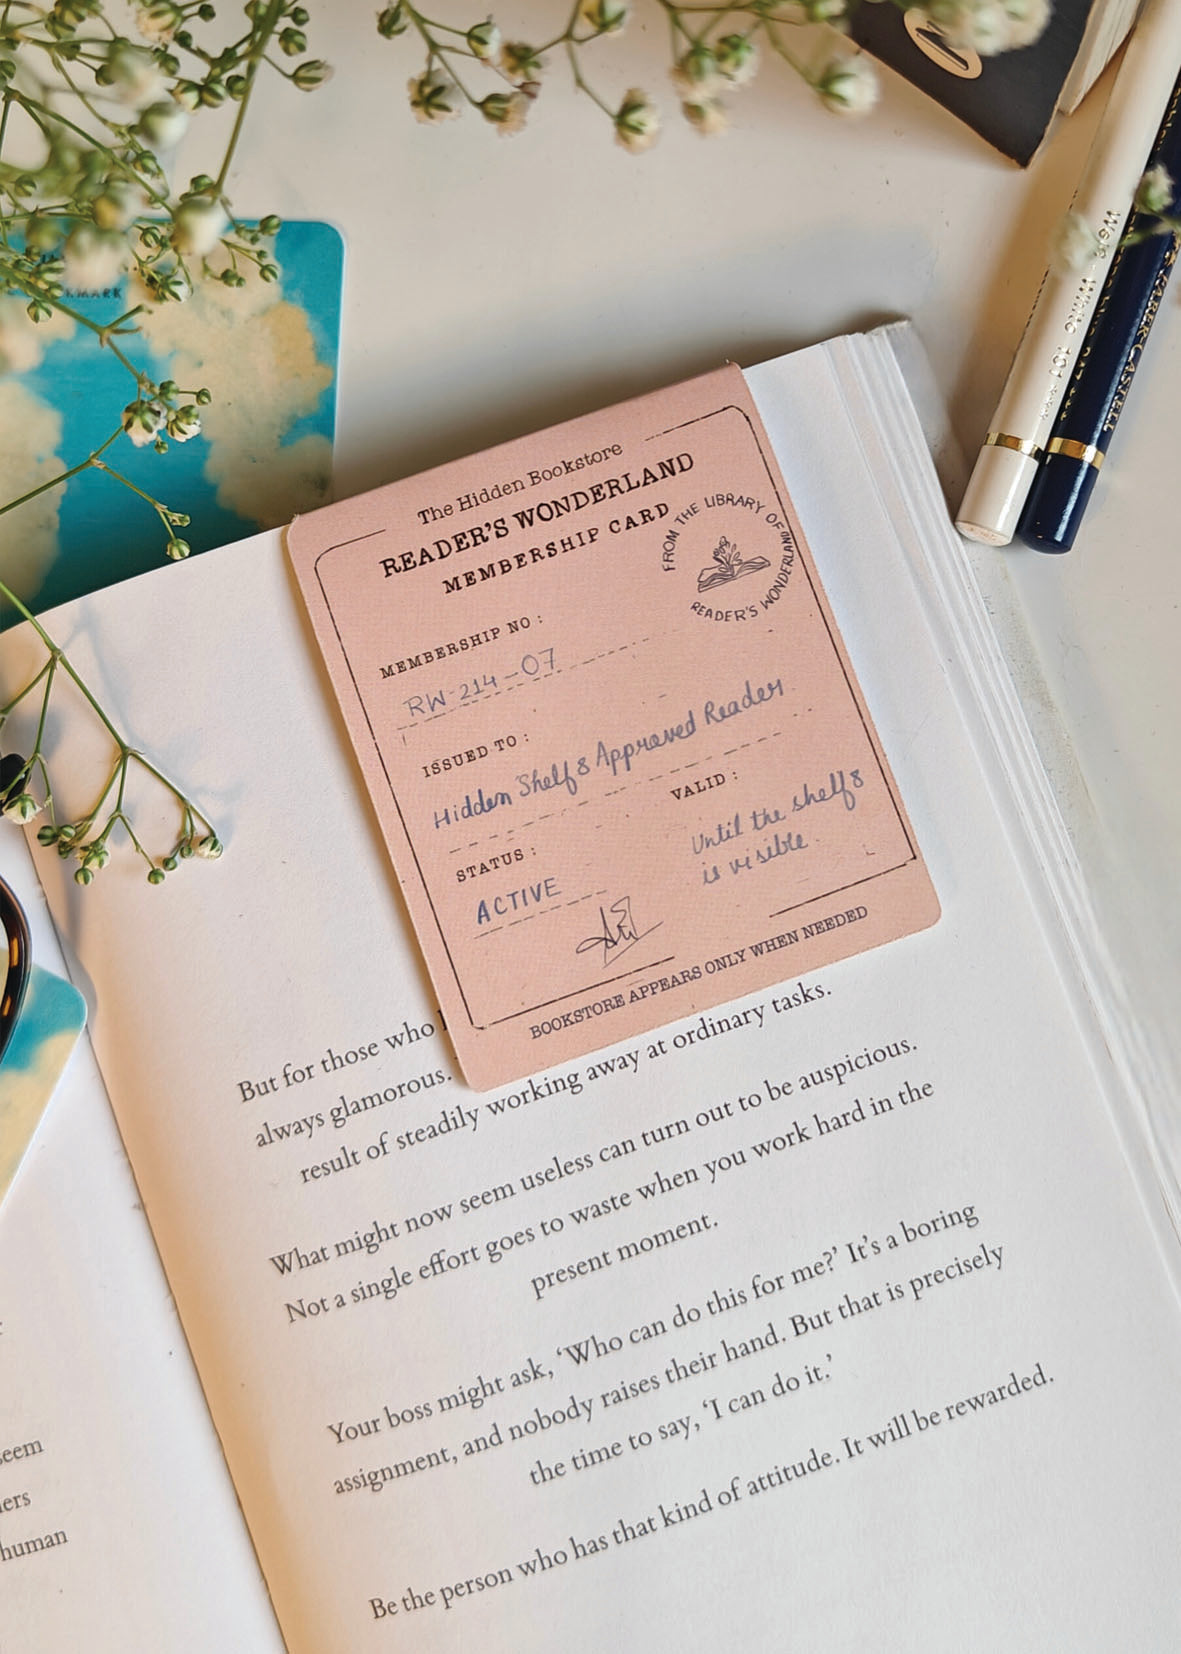 The Hidden Bookstore
READER'S WONDERLAND
MEMBERSHIP CARD
FROM THE LIBRARY OF
READER'S WONDERLAND
MEMBERSHIP NO :
RW-214-07
ISSUED TO :
Hidden Shelf 8 Approved Reader
VALID :
Until the shelf 8
is visible.
STATUS :
ACTIVE
BOOKSTORE APPEARS ONLY WHEN NEEDED
But for those who
always glamorous.
result of steadily working away at ordinary tasks.
What might now seem useless can turn out to be auspicious.
Not a single effort goes to waste when you work hard in the
present moment.
Your boss might ask, ‘Who can do this for me?’ It’s a boring
assignment, and nobody raises their hand. But that is precisely
the time to say, ‘I can do it.’
Be the person who has that kind of attitude. It will be rewarded.
human
White 101
FABER-CASTELL